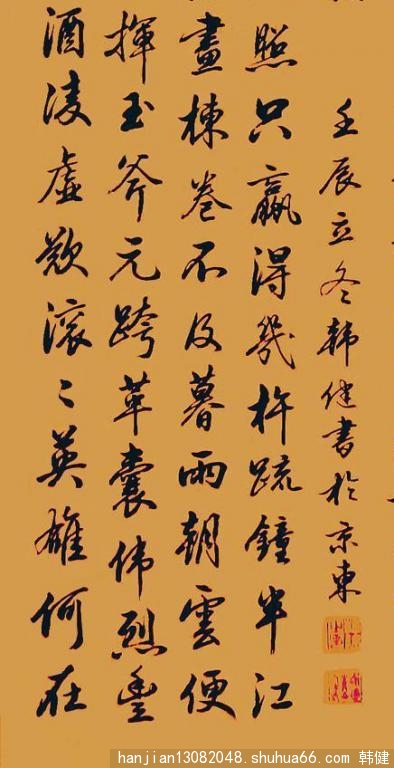 酒凌虛歎滚〻英雄何在
揮玉斧元跨革囊伟烈豐
畫棟卷不及暮雨朝雲便
照只贏得幾杵疏鐘半江
壬辰立冬韩健書於京東
hanjian13082048.shuhua66.com 韩健